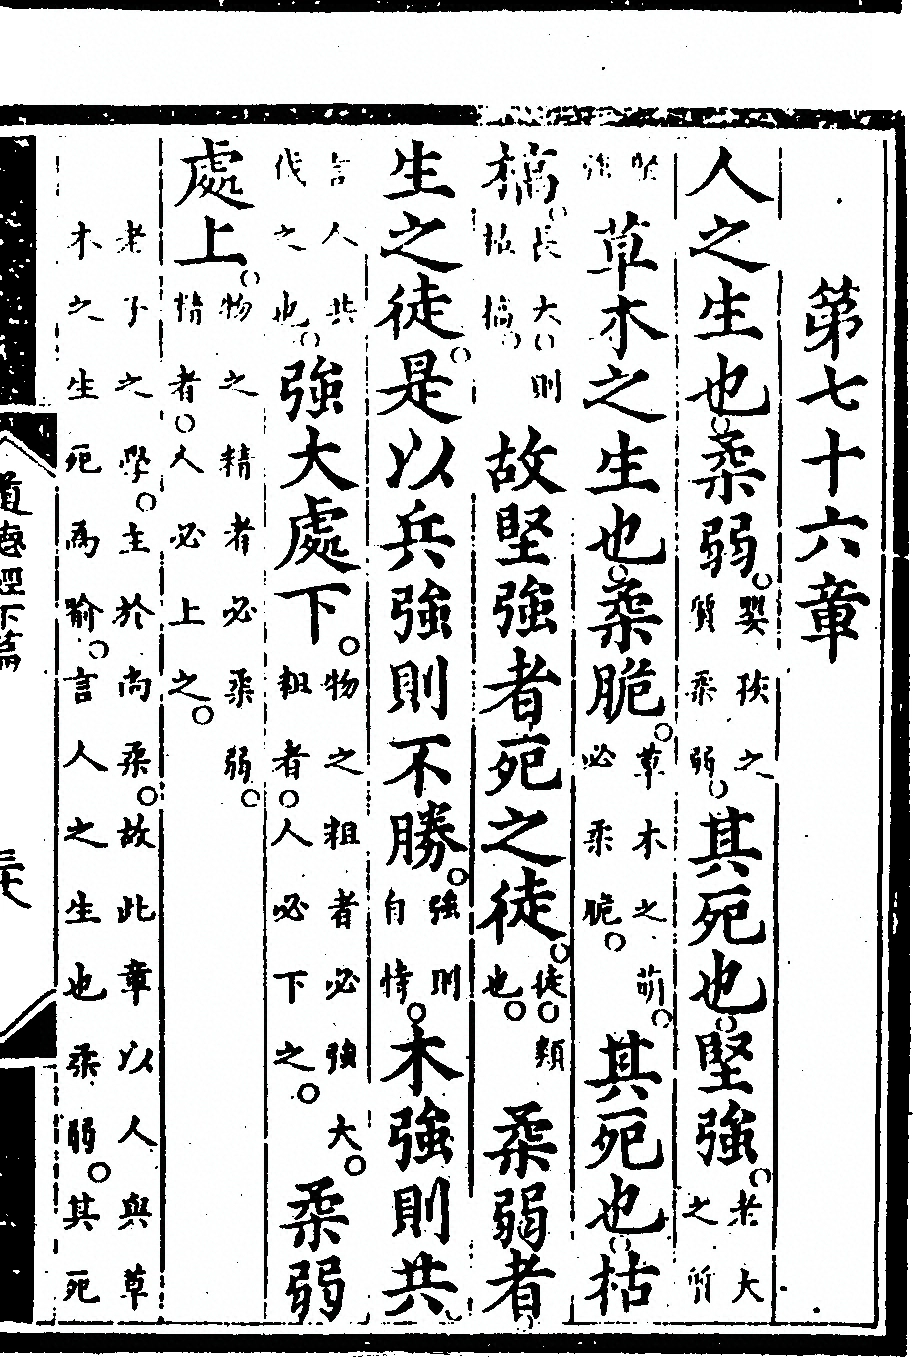 第七十六章
人之生也。柔弱。嬰孩之質柔弱。其死也。堅強。老大之質
堅強草木之生也。柔脆。草木之萌。必柔脆。其死也。枯
槁。長大。則枯槁。故堅強者死之徒。徒。類也。柔弱者。
生之徒。是以兵強則不勝。強則自恃。木強則共
言人共伐之也。強大處下。物之粗者必強大。粗者。人必下之。柔弱
處上。物之精者必柔弱。精者。人必上之。
老子之學。主於尚柔。故此章以人與草
木之生死為喻。言人之生也柔弱。其死
道德經下篇